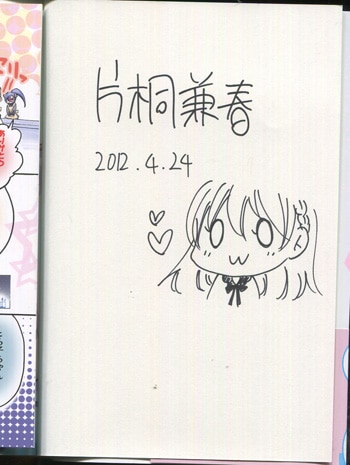 片桐兼春
2012.4.24